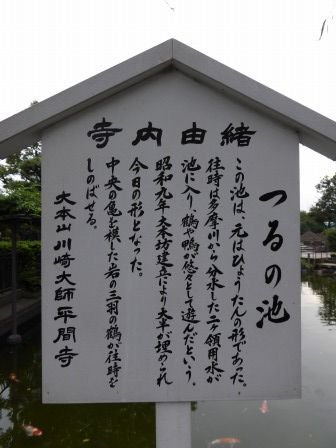 寺内由緒
つるの池
この池は、元はひょうたんの形であった。
往時は多摩川から分水した二ヶ領用水が
池に入り、鶴や鴨が悠々として遊んだという。
昭和九年不動坊建立により大半が埋められ
今日の形となった。
中央の亀を模した岩の三羽の鶴が往時を
しのばせる。
大本山川崎大師平間寺